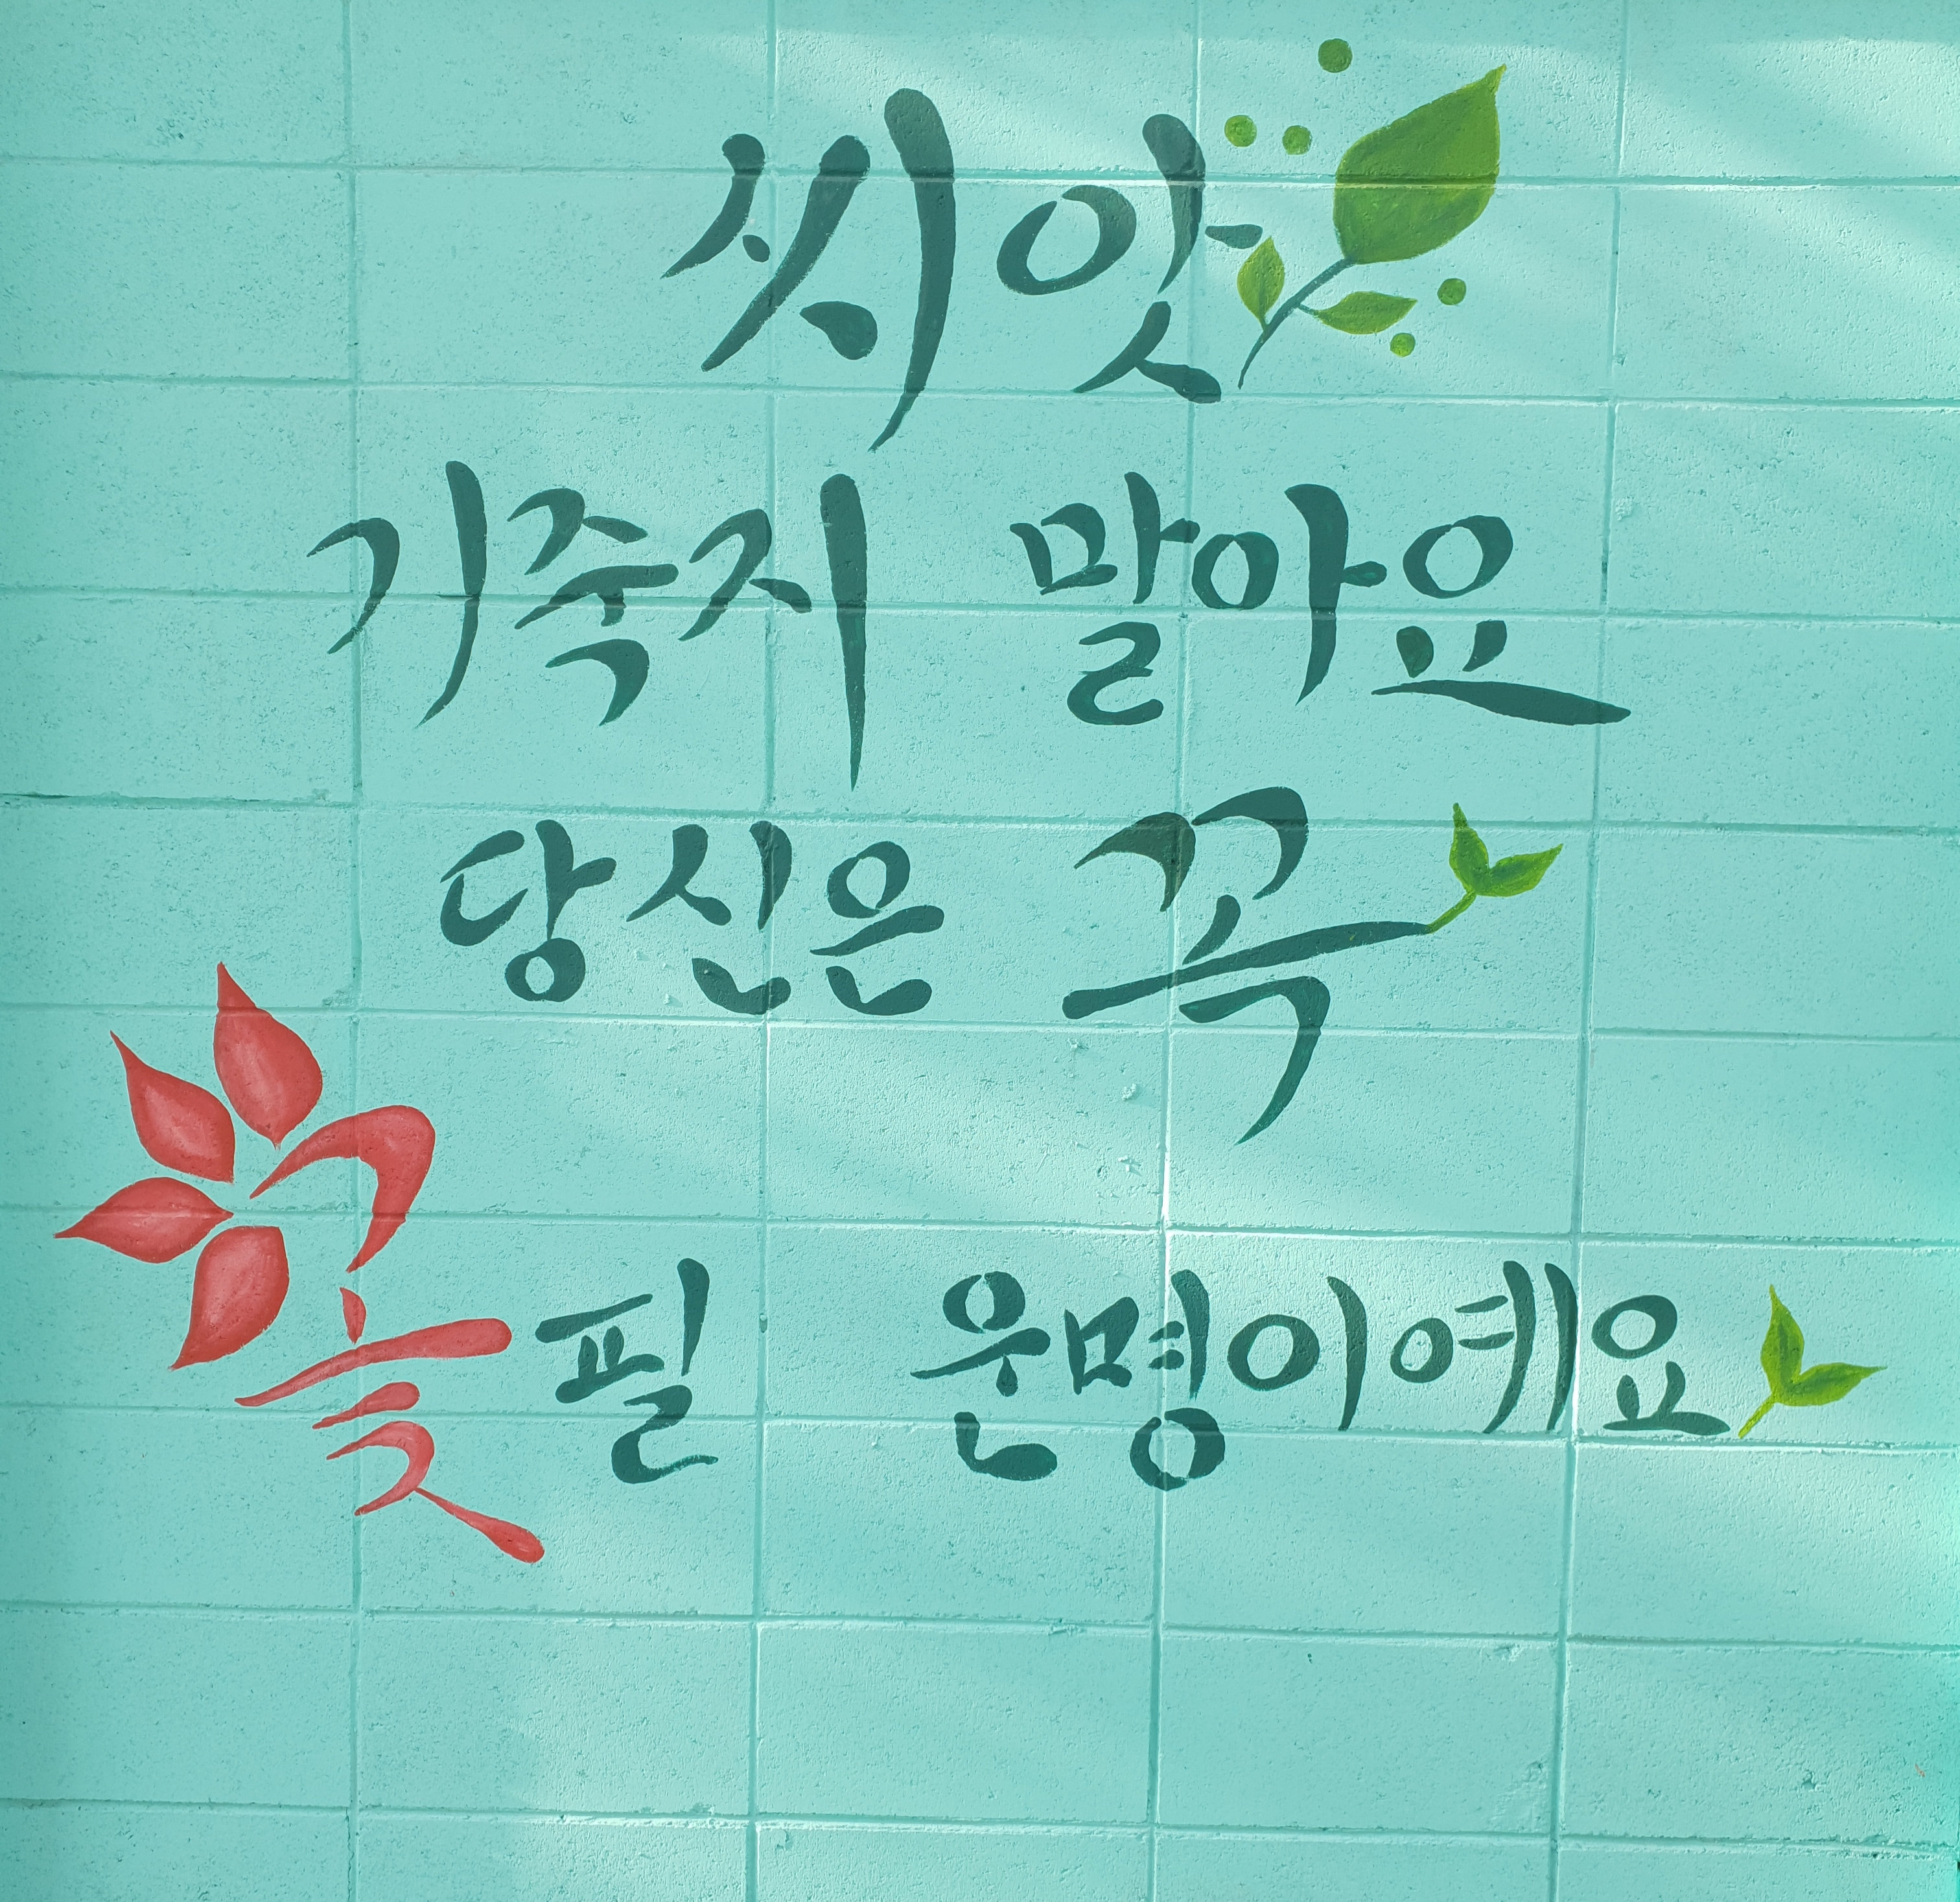 씨앗
기죽지 말아요
당신은 꼭
꽃필 운명이예요